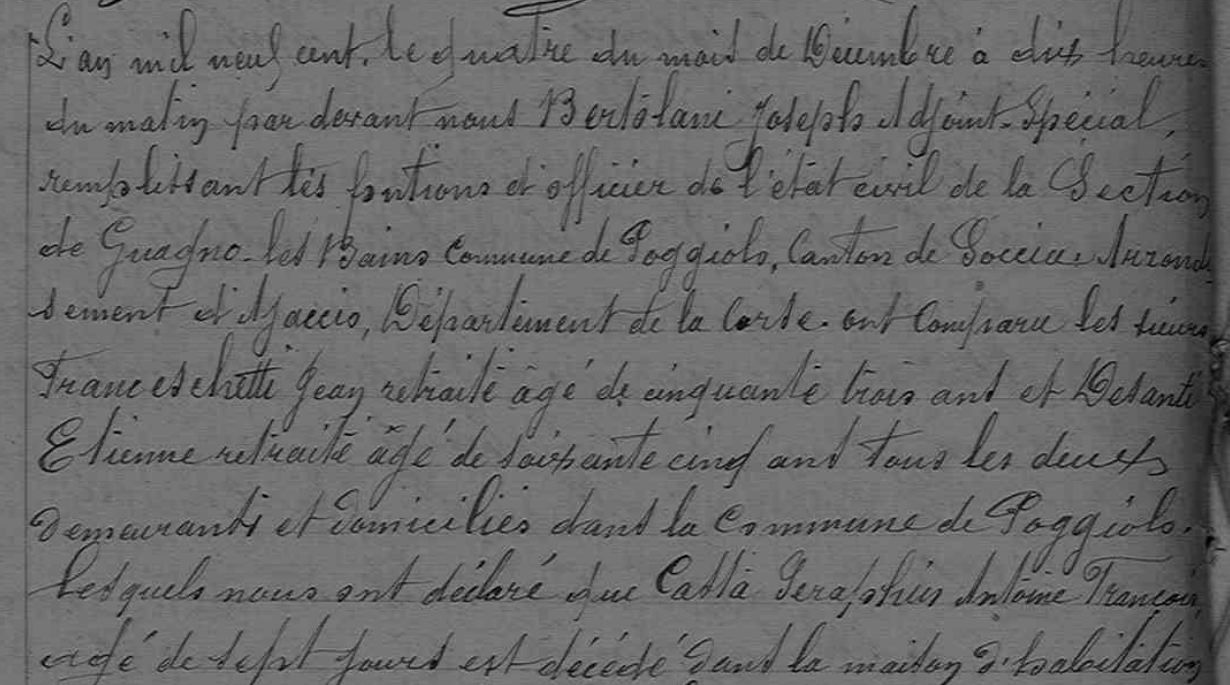 L'an mil neuf cent, le quatre du mois de Décembre à dix heures
du matin par devant nous Bertolani Joseph Adjoint-Spécial,
remplissant les fontions d'officier de l'état civil de la Section
de Guagno-les Bains Commune de Poggiolo, Canton de Soccia, Arrond
sement d'Ajaccio, Département de la Corse. ont Comparu les sieurs
Franceschetti Jean retraité âgé de cinquante trois ans et Desanti
Etienne retraité âgé de soixante cinq ans tous les deux
demeurants et domiciliés dans la Commune de Poggiolo.
Lesquels nous ont déclaré que Casta Seraphin Antoine François,
agé de sept jours est décédé dans la maison d'habitation